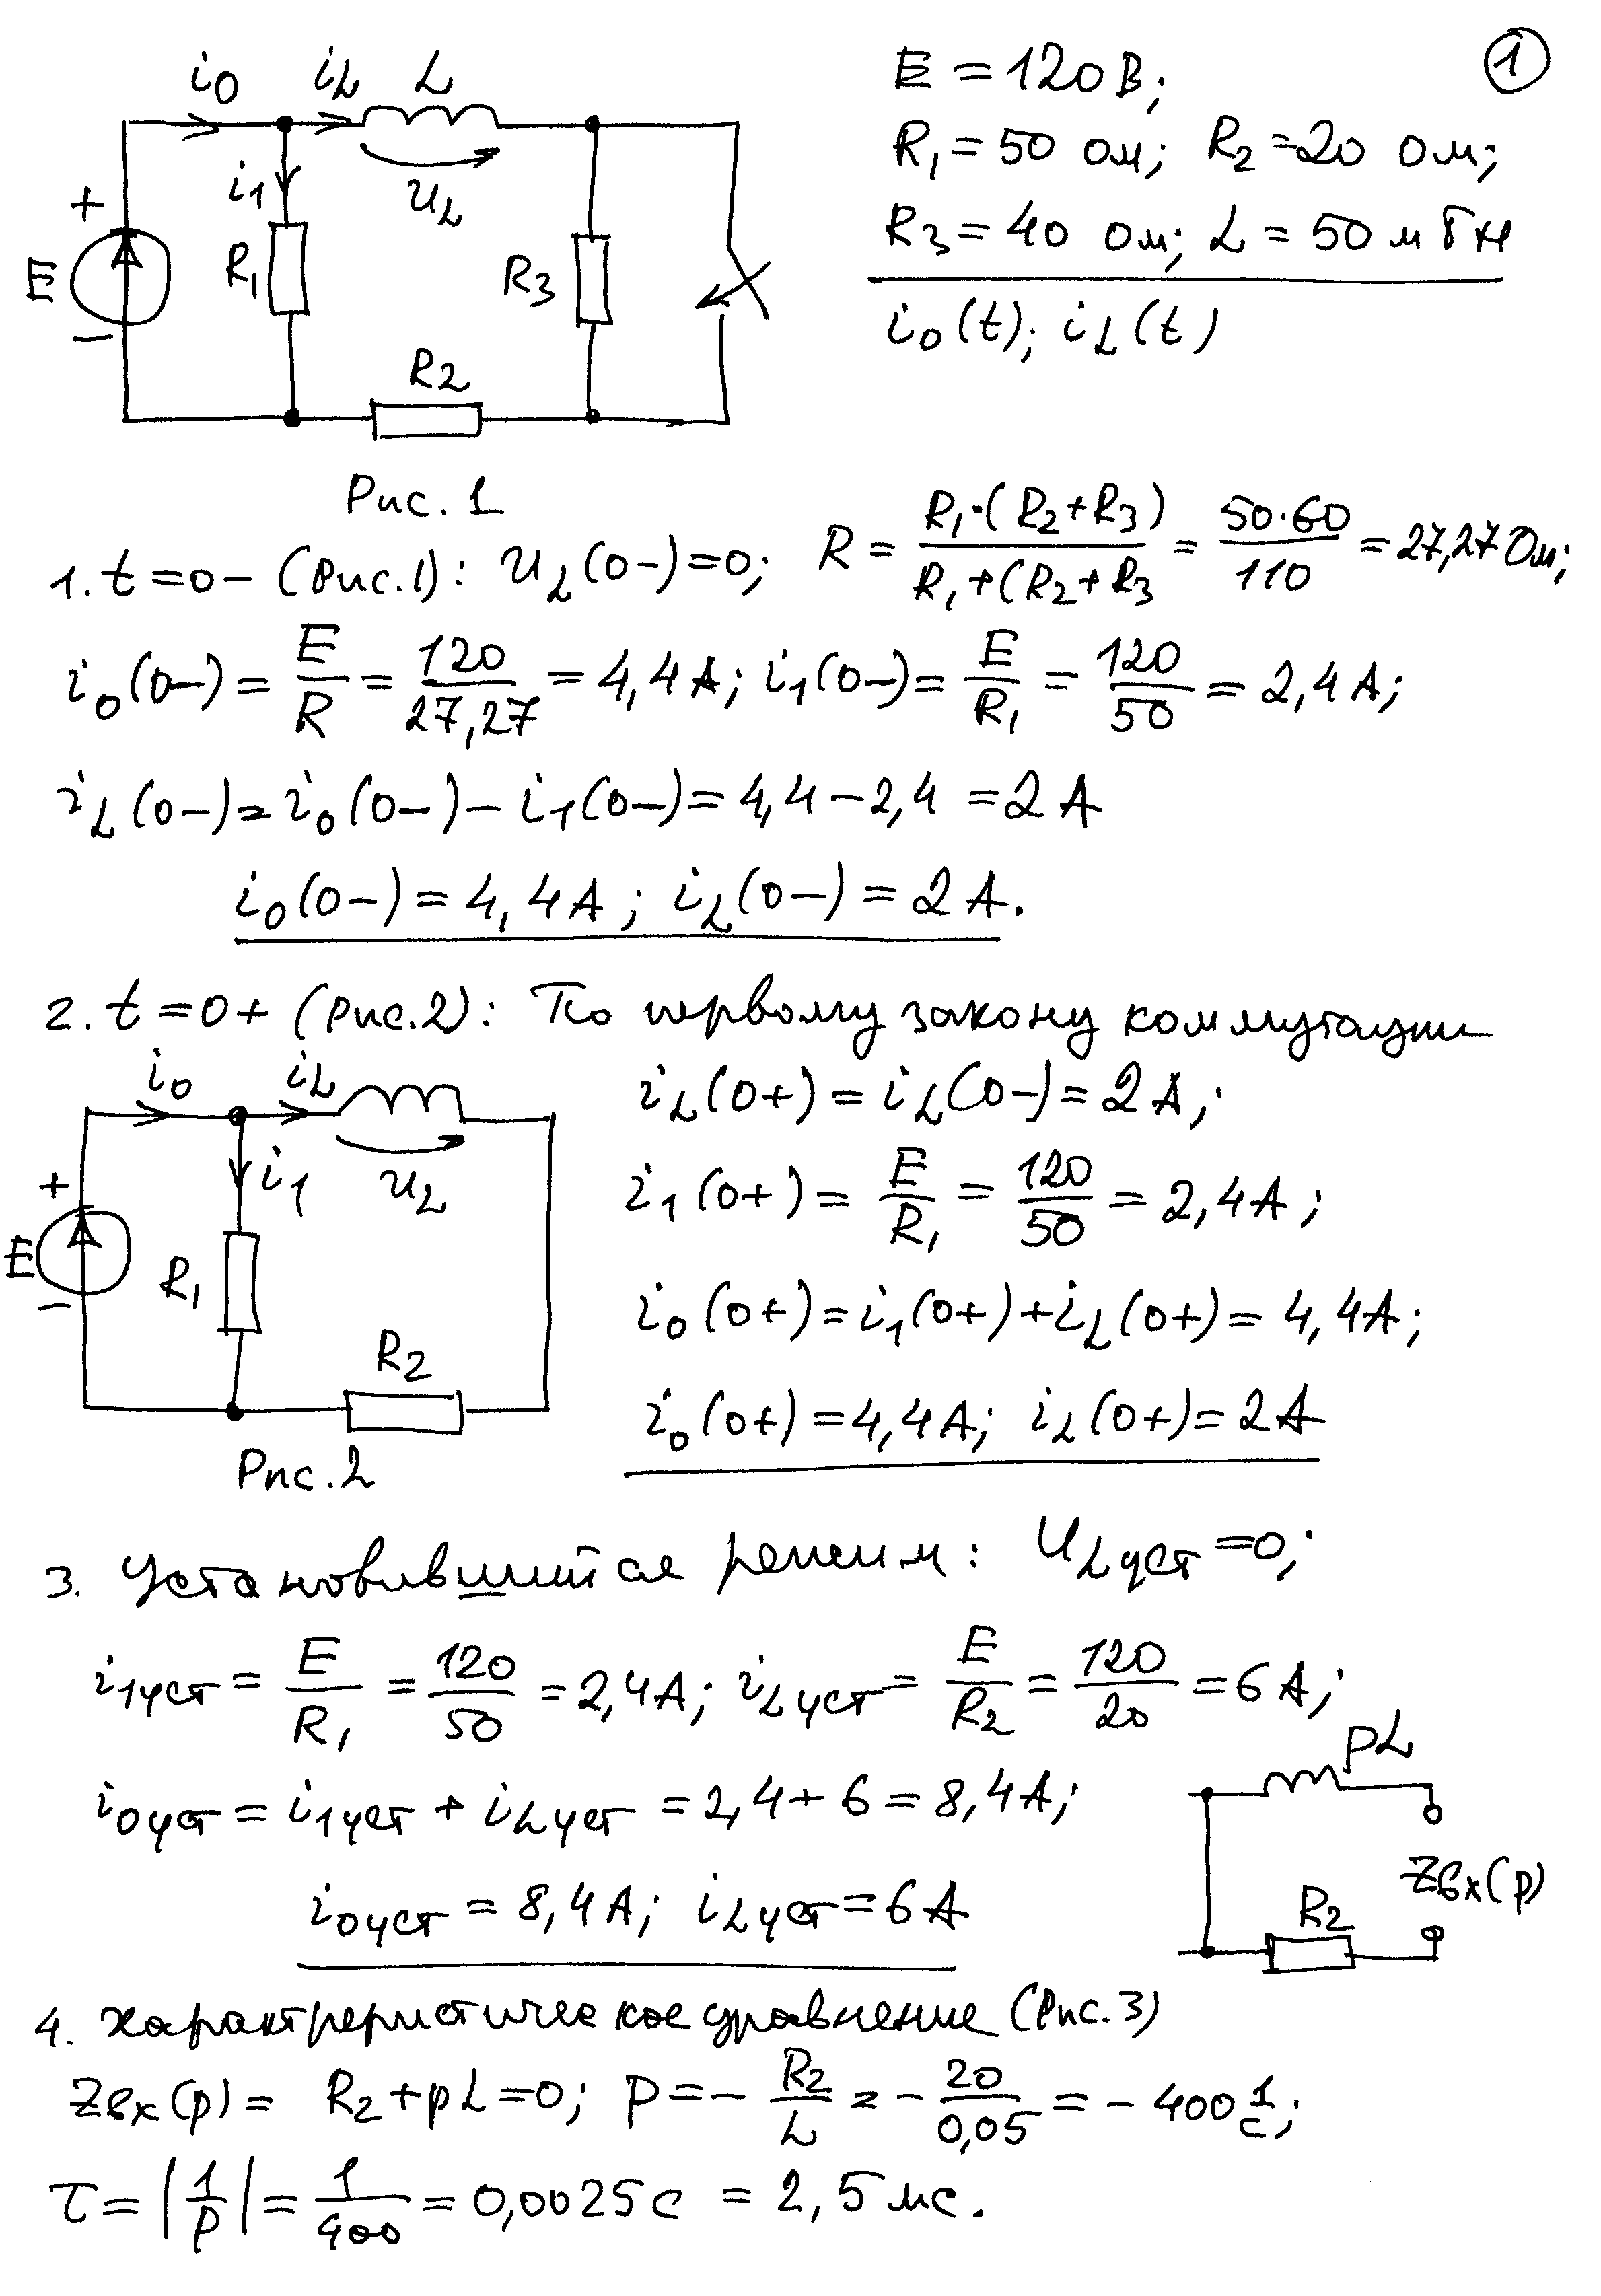 ①
i₀ i_L L
E = 120 В;
R₁ = 50 Ом; R₂ = 20 Ом;
+ i₁ u_L
R₃ = 40 Ом; L = 50 мГн
E R₁ R₃
i₀(t); i_L(t)
−
R₂
Рис. 1
1. t = 0− (Рис.1): u_L(0−) = 0; R = R₁·(R₂+R₃) / R₁+(R₂+R₃ = 50·60 / 110 = 27,27 Ом;
i₀(0−) = E/R = 120/27,27 = 4,4 А; i₁(0−) = E/R₁ = 120/50 = 2,4 А;
i_L(0−) = i₀(0−) − i₁(0−) = 4,4 − 2,4 = 2 А
i₀(0−) = 4,4 А; i_L(0−) = 2 А.
2. t = 0+ (Рис.2): По первому закону коммутации
i₀ i_L
i_L(0+) = i_L(0−) = 2 А;
+ i₁ u_L
i₁(0+) = E/R₁ = 120/50 = 2,4 А;
E R₁
−
i₀(0+) = i₁(0+) + i_L(0+) = 4,4 А;
R₂
i₀(0+) = 4,4 А; i_L(0+) = 2 А
Рис. 2
3. Установившийся режим: u_Lуст = 0;
i₁уст = E/R₁ = 120/50 = 2,4 А; i_Lуст = E/R₂ = 120/20 = 6 А;
pL
i₀уст = i₁уст + i_Lуст = 2,4 + 6 = 8,4 А;
Zвх(p)
i₀уст = 8,4 А; i_Lуст = 6 А
R₂
4. Характеристическое уравнение (Рис. 3)
Zвх(p) = R₂ + pL = 0; p = − R₂/L = − 20/0,05 = − 400 1/с;
τ = |1/p| = 1/400 = 0,0025 с = 2,5 мс.